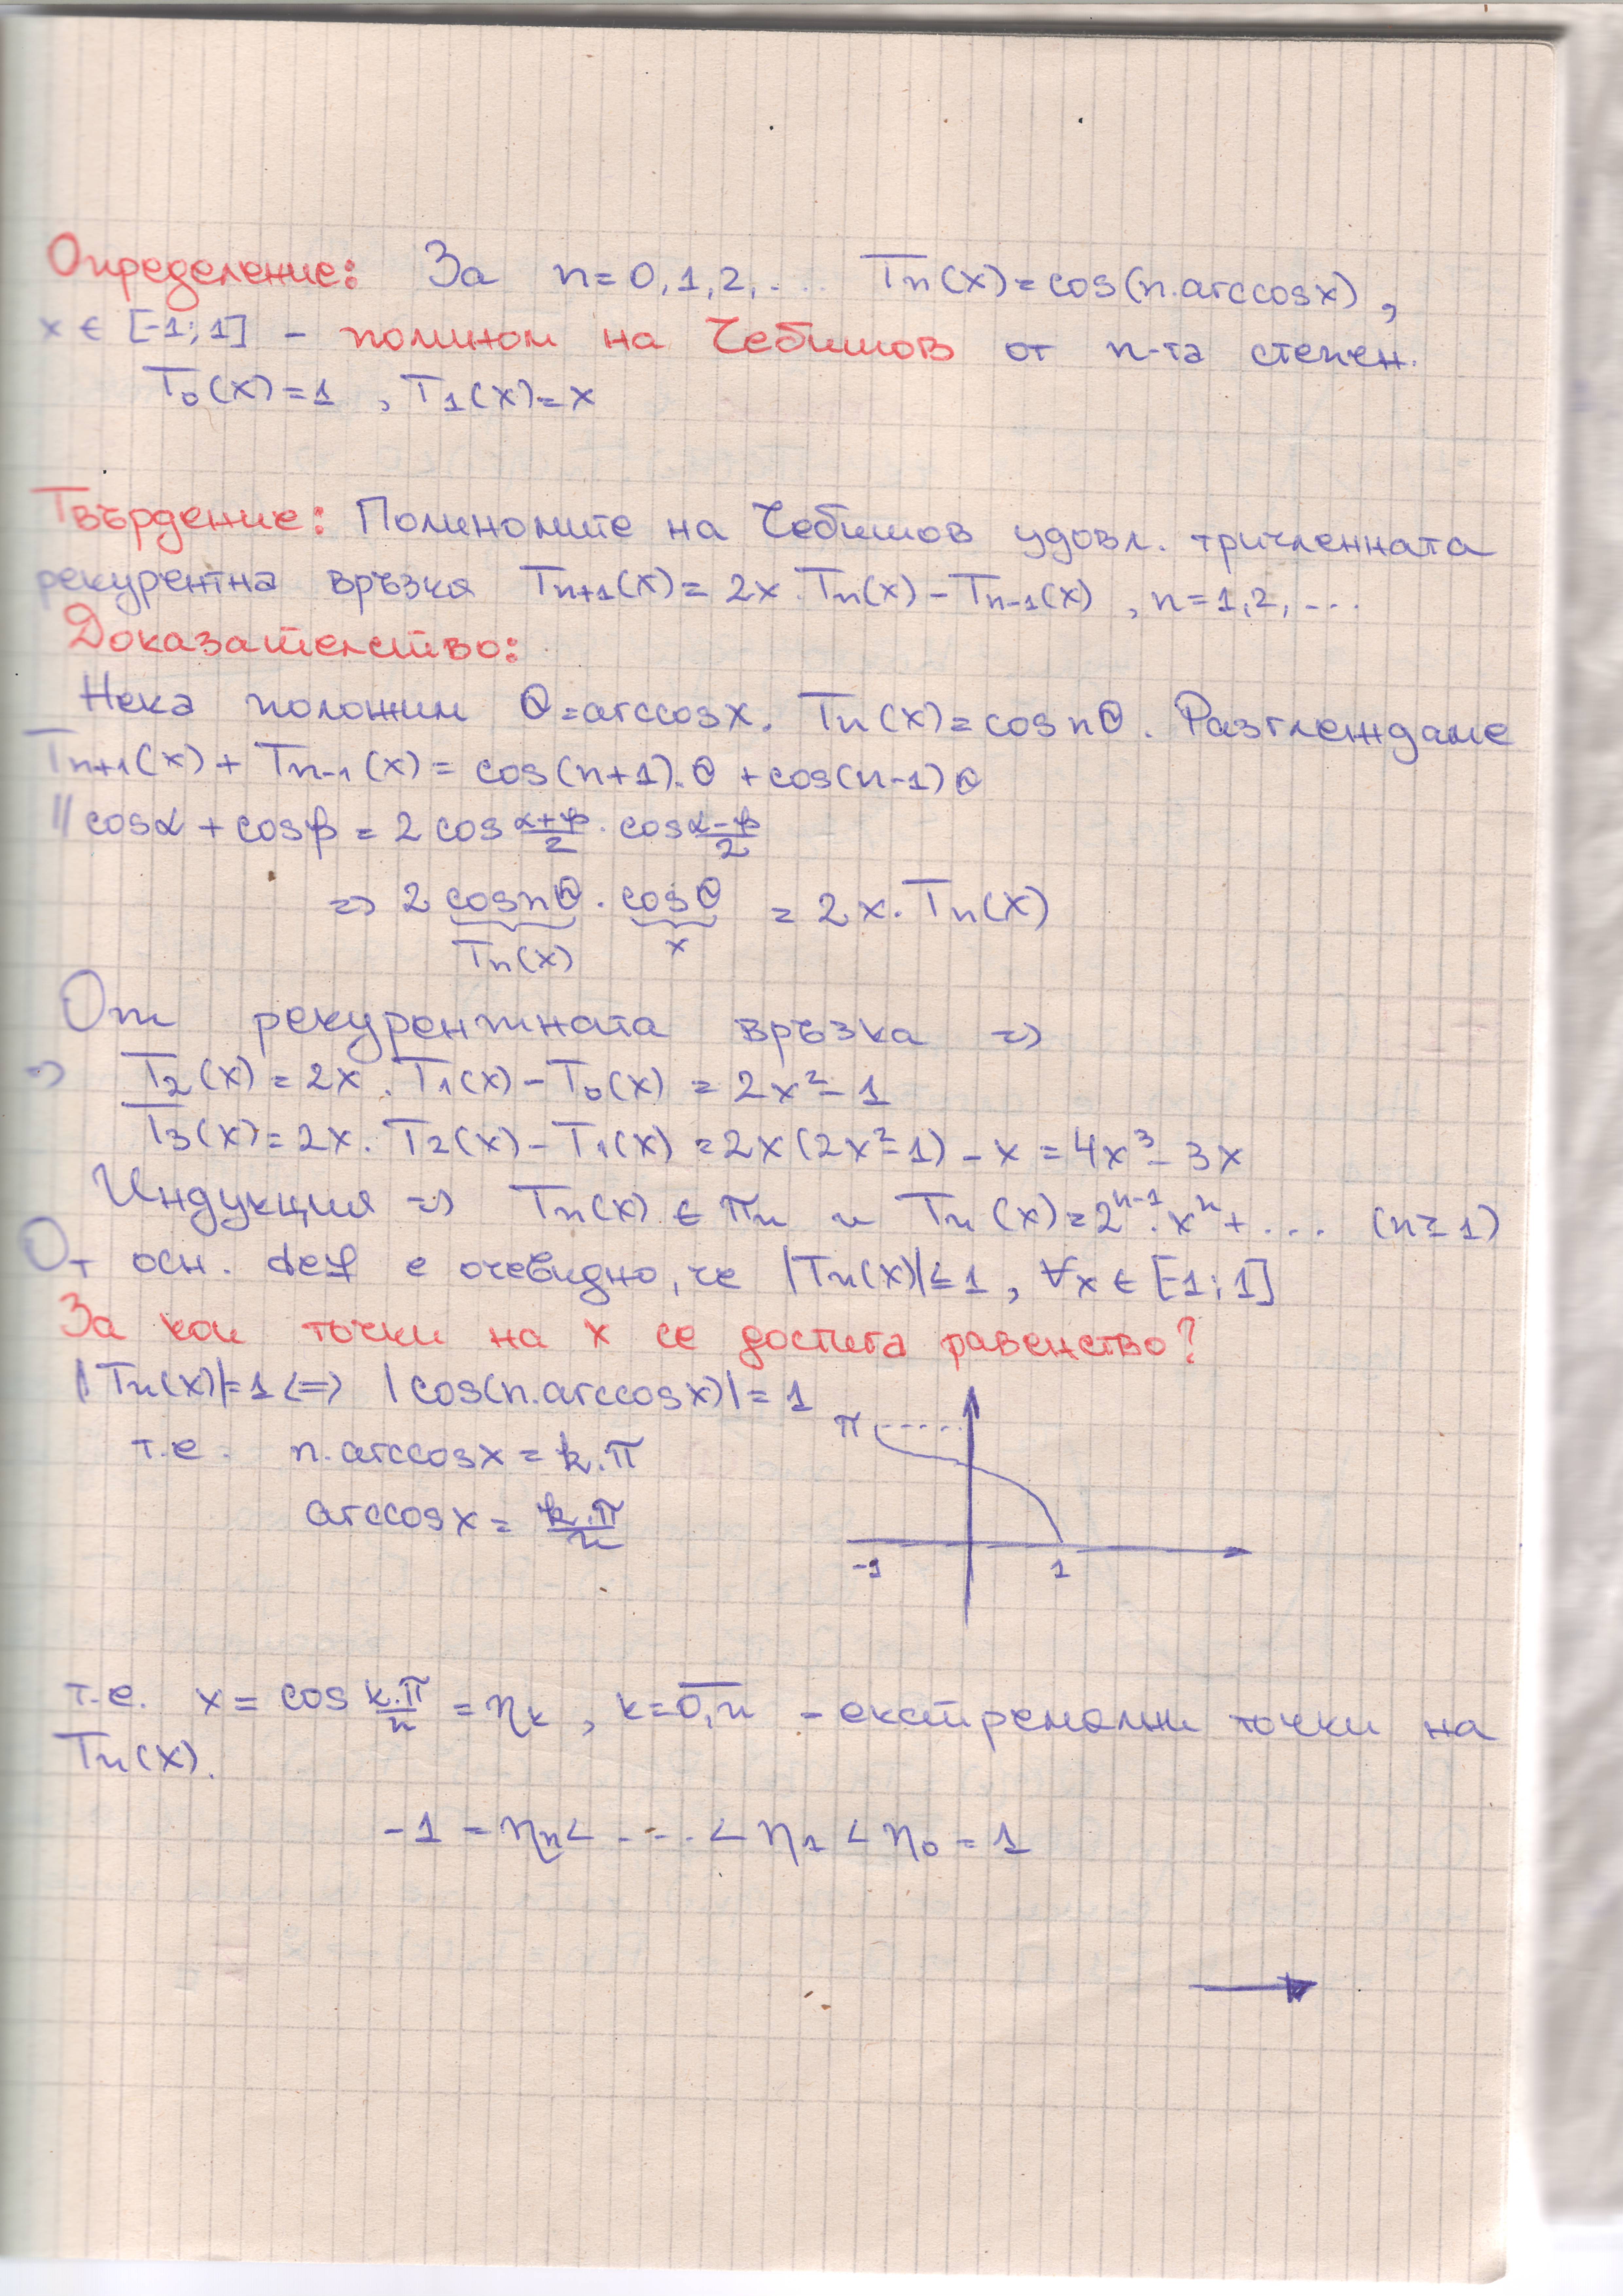 Определение: За n=0,1,2,... Tn(x)=cos(n.arccosx),
x ∈ [-1;1] - полином на Чебишов от n-та степен.
T₀(x)=1 , T₁(x)=x
Твърдение: Полиномите на Чебишов удовл. тричленната
рекурентна връзка Tn+1(x)=2x.Tn(x)-Tn-1(x) , n=1,2,...
Доказателство:
Нека положим θ=arccosx. Tn(x)=cosnθ. Разглеждаме
Tn+1(x)+Tn-1(x)=cos(n+1).θ+cos(n-1)θ
|| cosα+cosβ=2cos (α+β)/2 . cos (α-β)/2
=> 2 cosnθ . cosθ = 2x.Tn(x)
Tn(x) x
От рекурентната връзка =>
=> T₂(x)=2x.T₁(x)-T₀(x)=2x²-1
T₃(x)=2x.T₂(x)-T₁(x)=2x(2x²-1)-x=4x³-3x
Индукция => Tn(x) ∈ πn и Tn(x)=2ⁿ⁻¹.xⁿ+... (n≥1)
От осн. def е очевидно, че |Tn(x)|≤1, ∀x ∈ [-1;1]
За кои точки на x се достига равенство?
|Tn(x)|=1 <=> |cos(n.arccosx)|=1
π
т.е. n.arccosx=k.π
arccosx= k.π/n
-1 1
т.е. x=cos k.π/n = ηk , k=0,n̅ - екстремални точки на
Tn(x).
-1 = ηn< ... < η₁ < η₀ = 1